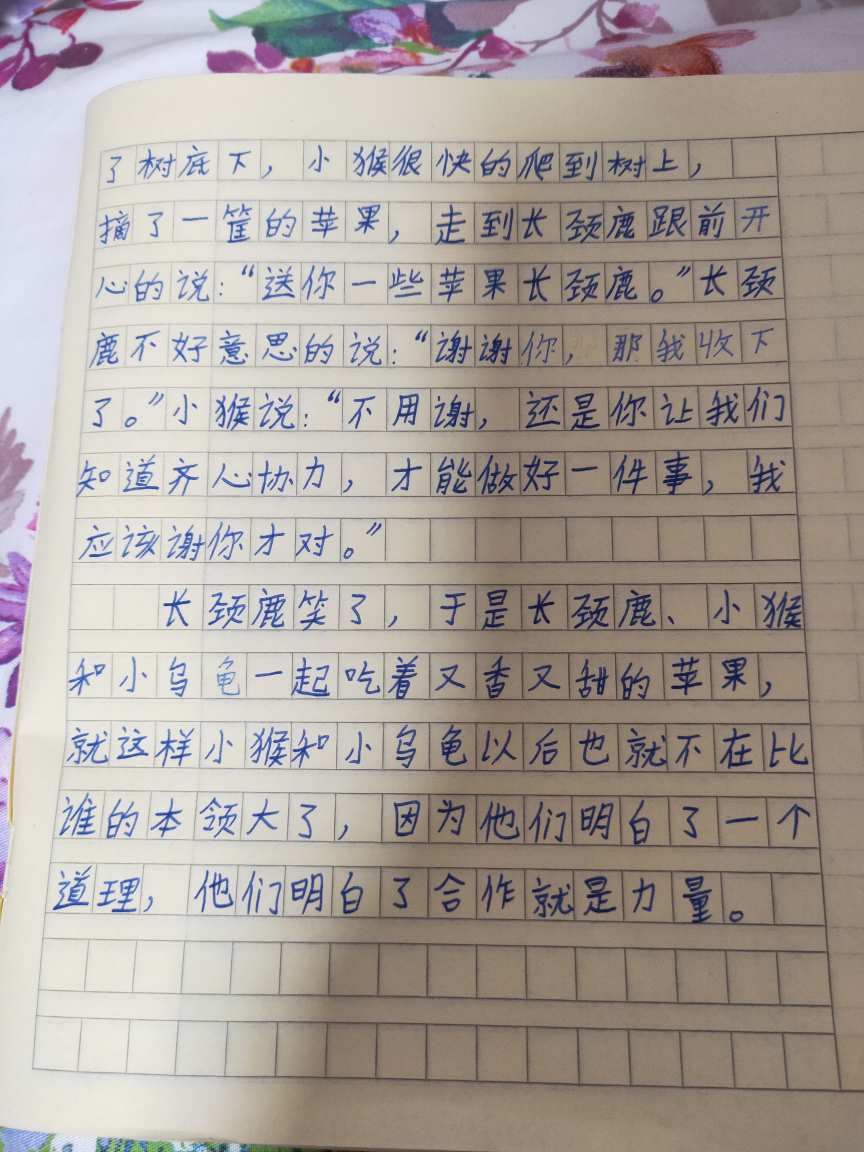 了树底下，小猴很快的爬到树上，
摘了一筐的苹果，走到长颈鹿跟前开
心的说：“送你一些苹果长颈鹿。”长颈
鹿不好意思的说：“谢谢你，那我收下
了。”小猴说：“不用谢，还是你让我们
知道齐心协力，才能做好一件事，我
应该谢你才对。”
长颈鹿笑了，于是长颈鹿、小猴
和小乌龟一起吃着又香又甜的苹果，
就这样小猴和小乌龟以后也就不在比
谁的本领大了，因为他们明白了一个
道理，他们明白了合作就是力量。